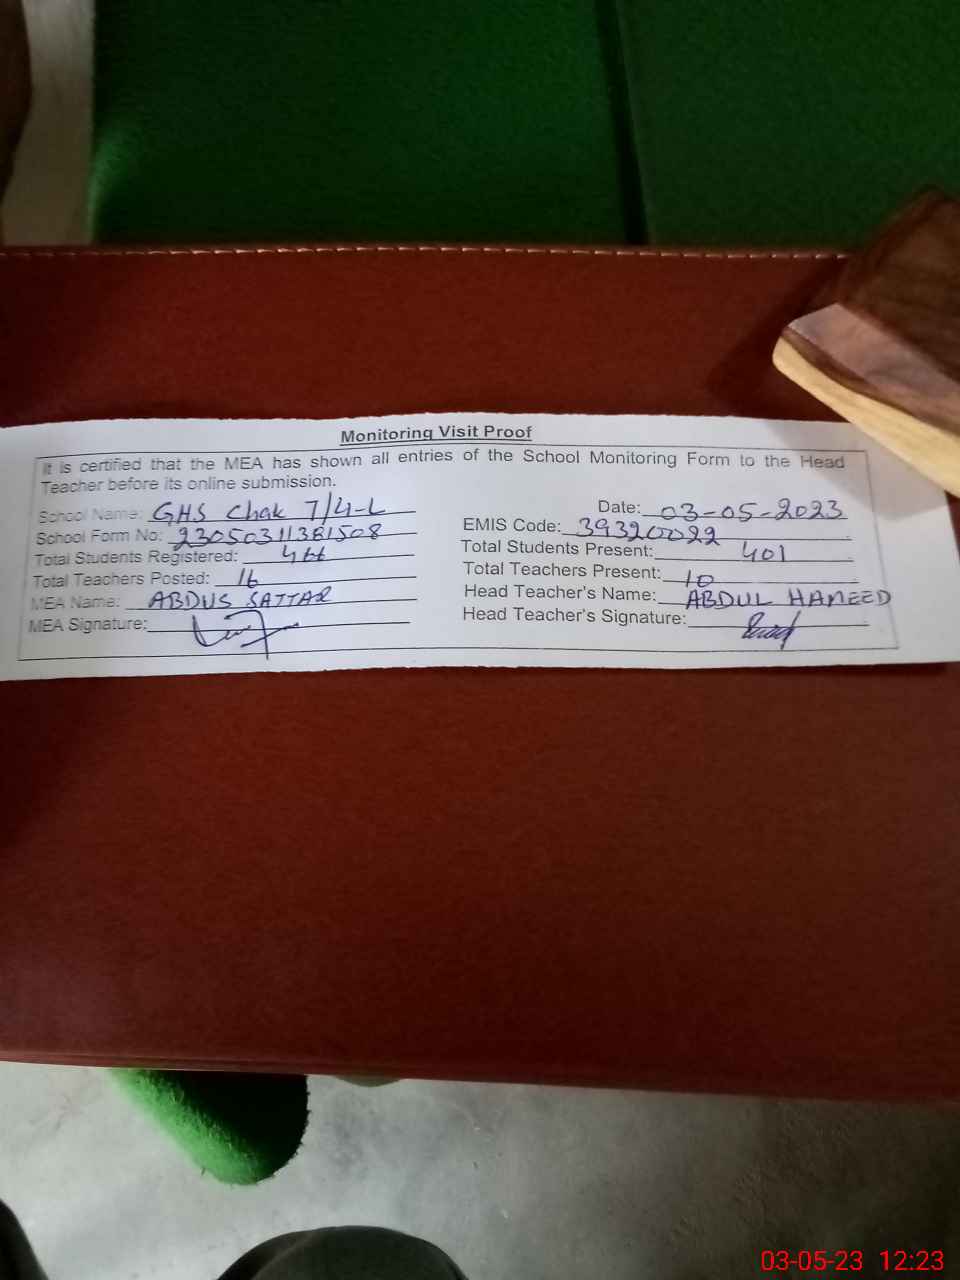 Monitoring Visit Proof
It is certified that the MEA has shown all entries of the School Monitoring Form to the Head
Teacher before its online submission.
School Name: GHS Chak 7/4-L Date: 03-05-2023
School Form No: 23050311381508 EMIS Code: 39320022
Total Students Registered: 466 Total Students Present: 401
Total Teachers Posted: 16 Total Teachers Present: 10
MEA Name: ABDUS SATTAR Head Teacher's Name: ABDUL HAMEED
MEA Signature: Head Teacher's Signature:
03-05-23 12:23